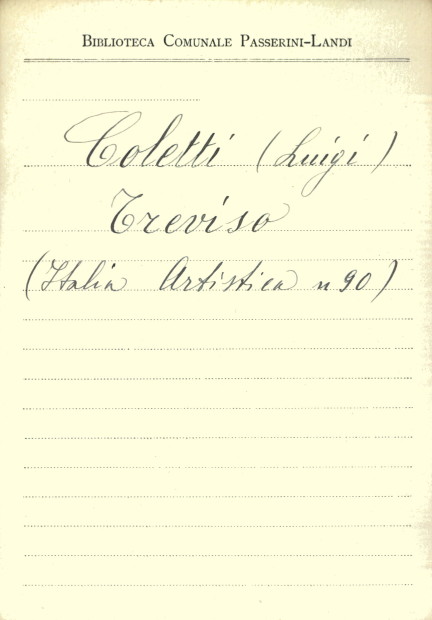 Biblioteca Comunale Passerini-Landi
Coletti (Luigi)
Treviso
(Italia Artistica n 90)